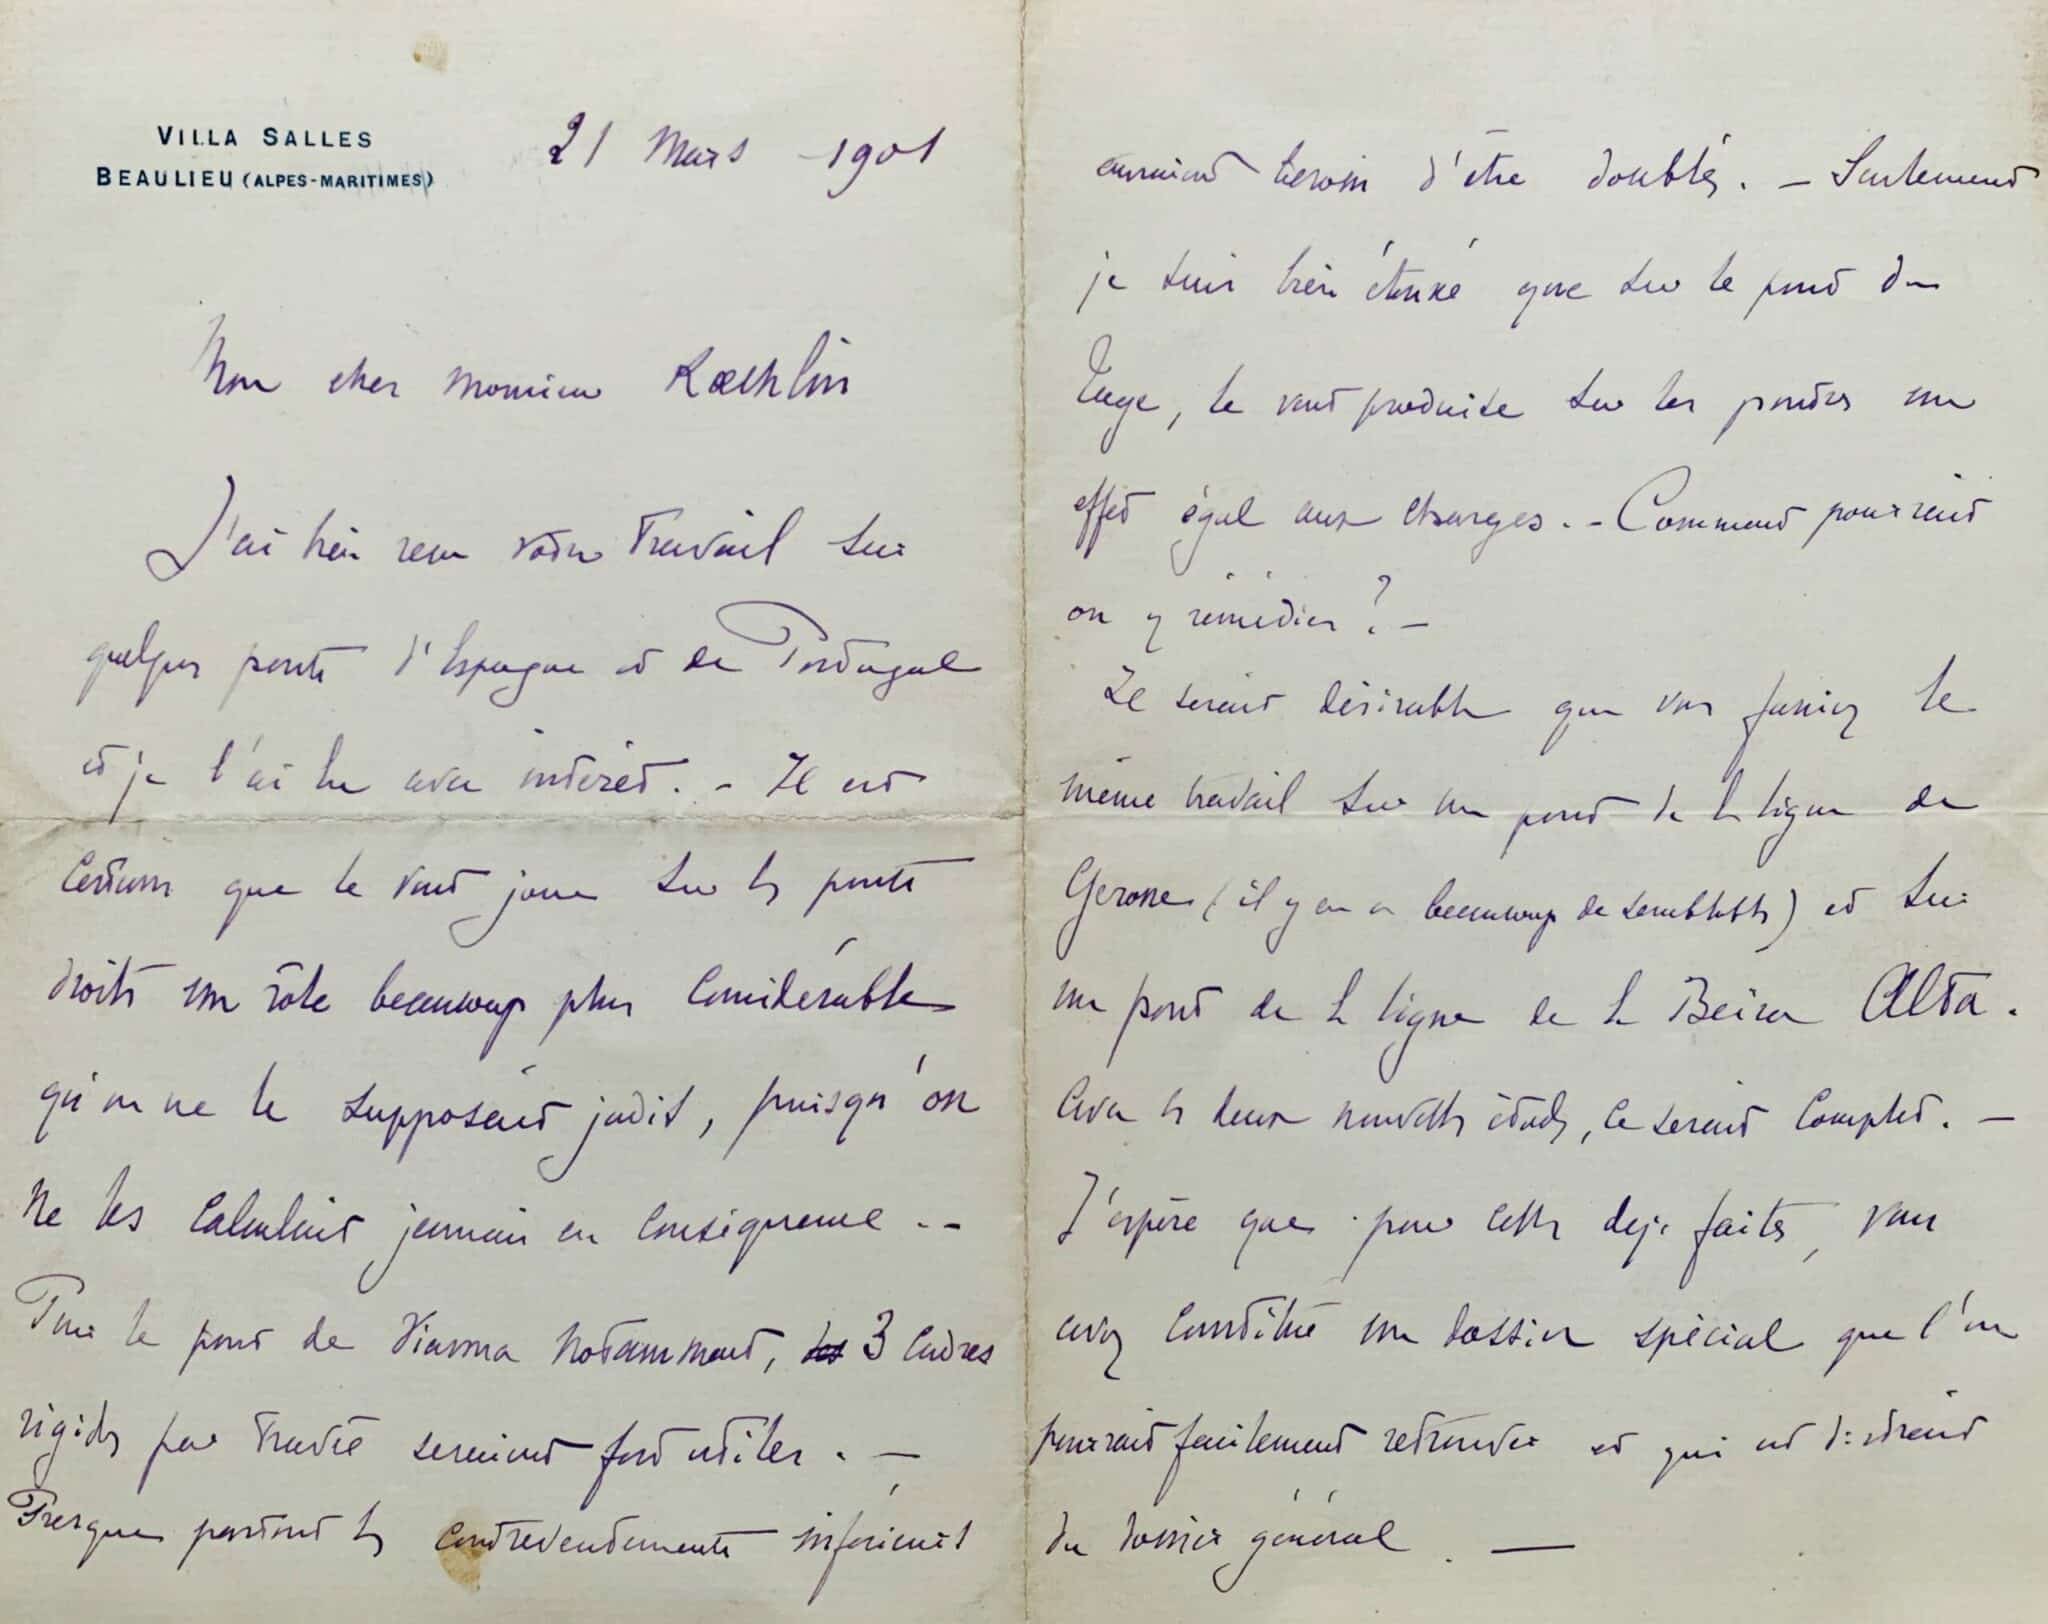 VILLA SALLES
BEAULIEU (ALPES-MARITIMES)
21 Mars 1901
Mon cher Monsieur Koechlin
J'ai bien reçu votre travail sur
quelques ponts d'Espagne et de Portugal
et je l'ai lu avec intérêt. - Il est
certain que le vent joue sur les ponts
droits un rôle beaucoup plus considérable
qu'on ne le supposait jadis, puisqu'on
ne les calculait jamais en conséquence. -
Pour le pont de Vianna notamment, les 3 cadres
rigides par travée seraient fort utiles. -
Presque partout les contreventements inférieurs
auraient besoin d'être doublés. - Seulement
je suis bien étonné que sur le pont du
Tage, le vent produise sur les poutres un
effet égal aux charges. - Comment pourrait
on y rémédier ? -
Il serait désirable que vous fassiez le
même travail sur un pont de la ligne de
Gerone (il y en a beaucoup de semblables) et sur
un pont de la ligne de la Beira Alta.
Avec ces deux nouvelles études, ce serait complet. -
J'espère que pour celles déjà faites, vous
avez constitué un dossier spécial que l'on
pourrait facilement retrouver et qui est distrait
du dossier général. -